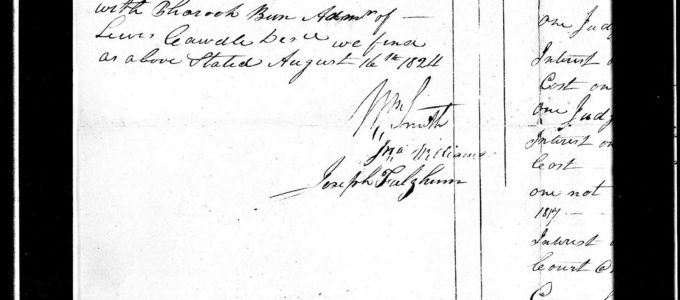 with Bharook Bun Admr of
Lewis Cawdle Decd we find
as above Stated August 16th 1824
Wm Smith
Jna Williams
Joseph Fulghum
one Judg
Interest o
Cost on
one Judg
Interest on
Cost
one not
1817
Interest o
Court C